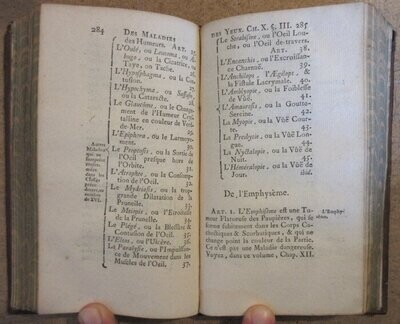 284 DES MALADIES
des Humeurs. ART. 25.
L'Oulé, ou Leucoma, ou Al-
bugo, la Cicatrice, ou la
Taye, ou Tache.
L'Hyposphagma, ou la
L'Hypochyma, ou Suffusio,
ou la Cataracte.
Le Glaucôme, ou le Change-
ment de l'Humeur Cris-
talline en couleur de Verd-
de-Mer.
L'Epiphora, ou le Larmoye-
ment.
Le Proptosis, ou la Sortie de
l'Oeil presque hors de
l'Orbite.
L'Atrophie, ou la Consomp-
tion de l'Oeil.
Le Mydriasis, ou la trop
grande Dilatation de la
Prunelle.
Le Myosis, ou l'Etroitesse
de la Prunelle.
Le Plégé, ou la Blessure &
Contusion de l'Oeil.
L'Elcos, ou l'Ulcère.
Le Paralysis, ou l'Impuissan-
ce de Mouvement dans les
Muscles de l'Oeil. 37.
Autres
Maladies
DES YEUX. CH. X. §. III. 285
Le Strabisme, ou l'Oeil Lou-
che, ou l'Oeil de-travers.
ART. 38.
L'Encanthis, ou l'Excroissan-
ce Charnuë. 39.
L'Anchilops, l'Ægilops, &
la Fistule Lacrymale. 40.
L'Amblyopie, ou la Foiblesse
de Vûë. 41.
L'Amaurosis, ou la Goutte-
Sereine. 42.
La Myopie, ou la Vûë Cour-
te. 43.
La Presbytie, ou la Vûë Lon-
gue. 44.
La Nyctalopie, ou la Vûë de
Nuit. 45.
L'Héméralopie, ou la Vûë de
Jour.
De l'Emphysème.
ART. 1. L'Emphysème est une Tu-
meur Flatueuse des Paupières, qui se
forme subitement dans les Corps Ca-
chectiques & Scorbutiques, & qui ne
change point la couleur de la Partie.
Ce n'est pas une Maladie dangereuse.
Voyez, dans ce volume, Chap. XII.
L'Emphy-